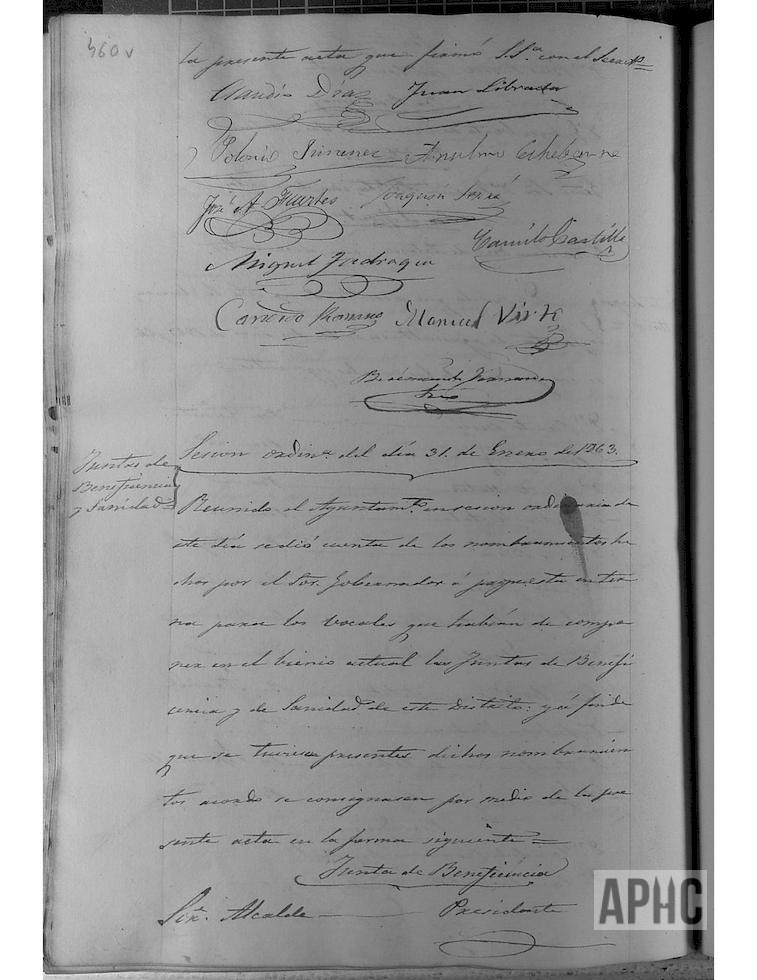 460 v
la presente acta que firmó S.Sª. con el Secretº=
Claudio Diaz Juan Librada
Polonio Jimenez Anselmo
José A. Fuertes Joaquin
Camilo Castilla
Miguel Jadraque
Romano Manuel
Sesion ordinª. del día 31. de Enero de 1863.
Juntas de
Beneficencia
y Sanidad
Reunido el Ayuntamtº. en sesion ordinaria de
este día se dió cuenta de los nombramientos he
chos por el Sor. Gobernador á propuesta en ter
na para los vocales que habían de compo
ner en el bienio actual las Juntas de Benefi
cencia y de Sanidad de este Distrito: y á fin de
que se tuviesen presentes dichos nombramien
tos acordó se consignasen por medio de la pre
sente acta en la forma siguiente=
Junta de Beneficencia
Sor. Alcalde — Presidente
APHC